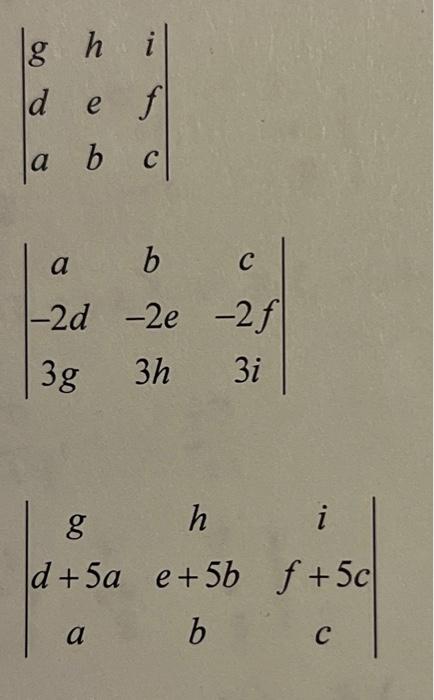 |g h i|
|d e f|
|a b c|
|a b c|
|−2d −2e −2f|
|3g 3h 3i|
|g h i|
|d + 5a e + 5b f + 5c|
|a b c|